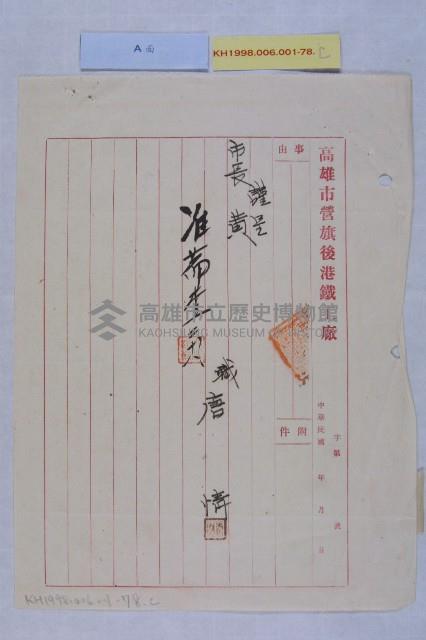 A面
KH1998.006.001-78.C
高雄市營旗後港鐵工廠
字第 號
中華民國 年 月 日
事由
附件
謹呈
市長 黃
職 唐
准
高雄市立歷史博物館
KAOHSIUNG MUSEUM OF HISTORY
KH1998.006.001-78.C